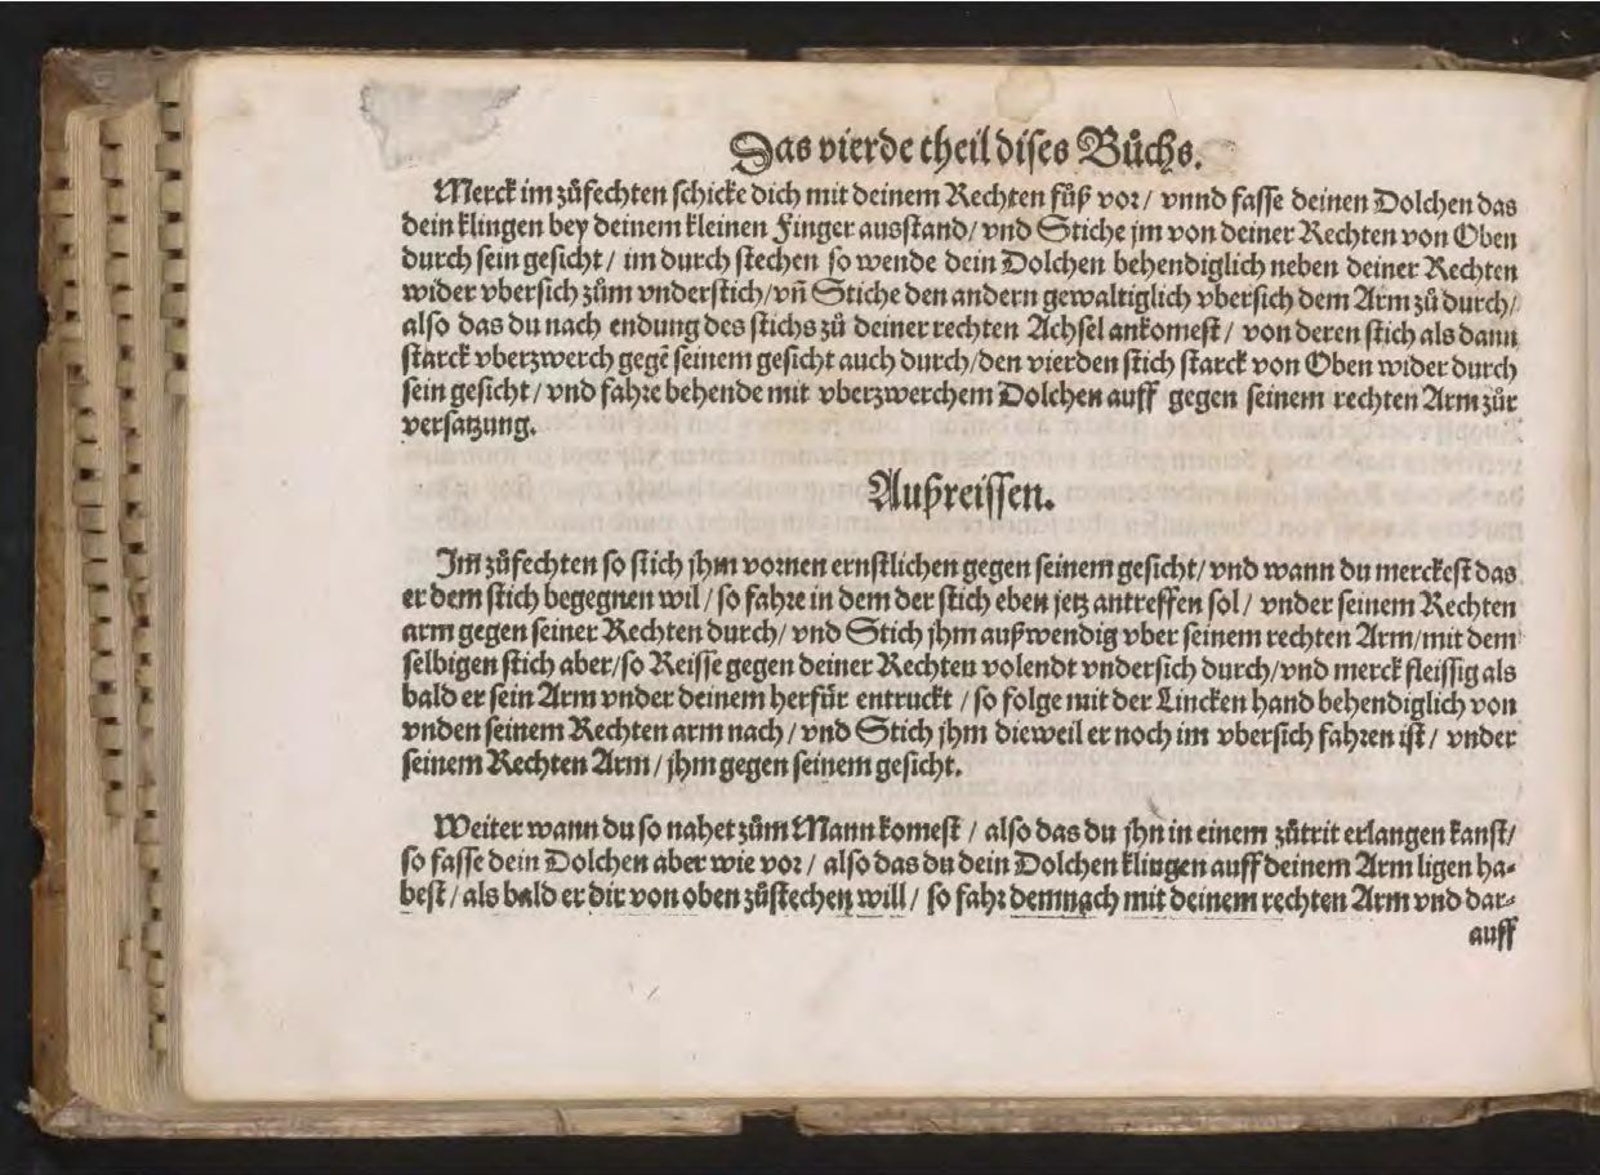 Das vierde theil dises Bůchs.
Merck im zůfechten schicke dich mit deinem Rechten fůß vor / vnnd fasse deinen Dolchen das
dein klingen bey deinem kleinen Finger ausstand / vnd Stiche jm von deiner Rechten von Oben
durch sein gesicht / im durch stechen so wende dein Dolchen behendiglich neben deiner Rechten
wider vbersich zům vnderstich / vñ Stiche den andern gewaltiglich vbersich dem Arm zů durch /
also das du nach endung des stichs zů deiner rechten Achsel ankomest / von deren stich als dann
starck vberzwerch gegẽ seinem gesicht auch durch / den vierden stich starck von Oben wider durch
sein gesicht / vnd fahre behende mit vberzwerchem Dolchen auff gegen seinem rechten Arm zůr
versatzung.
Außreissen.
Im̃ zůfechten so stich jhm vornen ernstlichen gegen seinem gesicht / vnd wann du merckest das
er dem stich begegnen wil / so fahre in dem der stich eben jetz antreffen sol / vnder seinem Rechten
arm gegen seiner Rechten durch / vnd Stich jhm außwendig vber seinem rechten Arm / mit dem
selbigen stich aber / so Reisse gegen deiner Rechten volendt vndersich durch / vnd merck fleissig als
bald er sein Arm vnder deinem herfür entruckt / so folge mit der Lincken hand behendiglich von
vnden seinem Rechten arm nach / vnd Stich jhm dieweil er noch im vbersich fahren ist / vnder
seinem Rechten Arm / jhm gegen seinem gesicht.
Weiter wann du so nahet zům Mann komest / also das du jhn in einem zůtrit erlangen kanst /
so fasse dein Dolchen aber wie vor / also das du dein Dolchen klingen auff deinem Arm ligen ha-
best / als bald er dir von oben zůstechen will / so fahr demnach mit deinem rechten Arm vnd dar-
auff